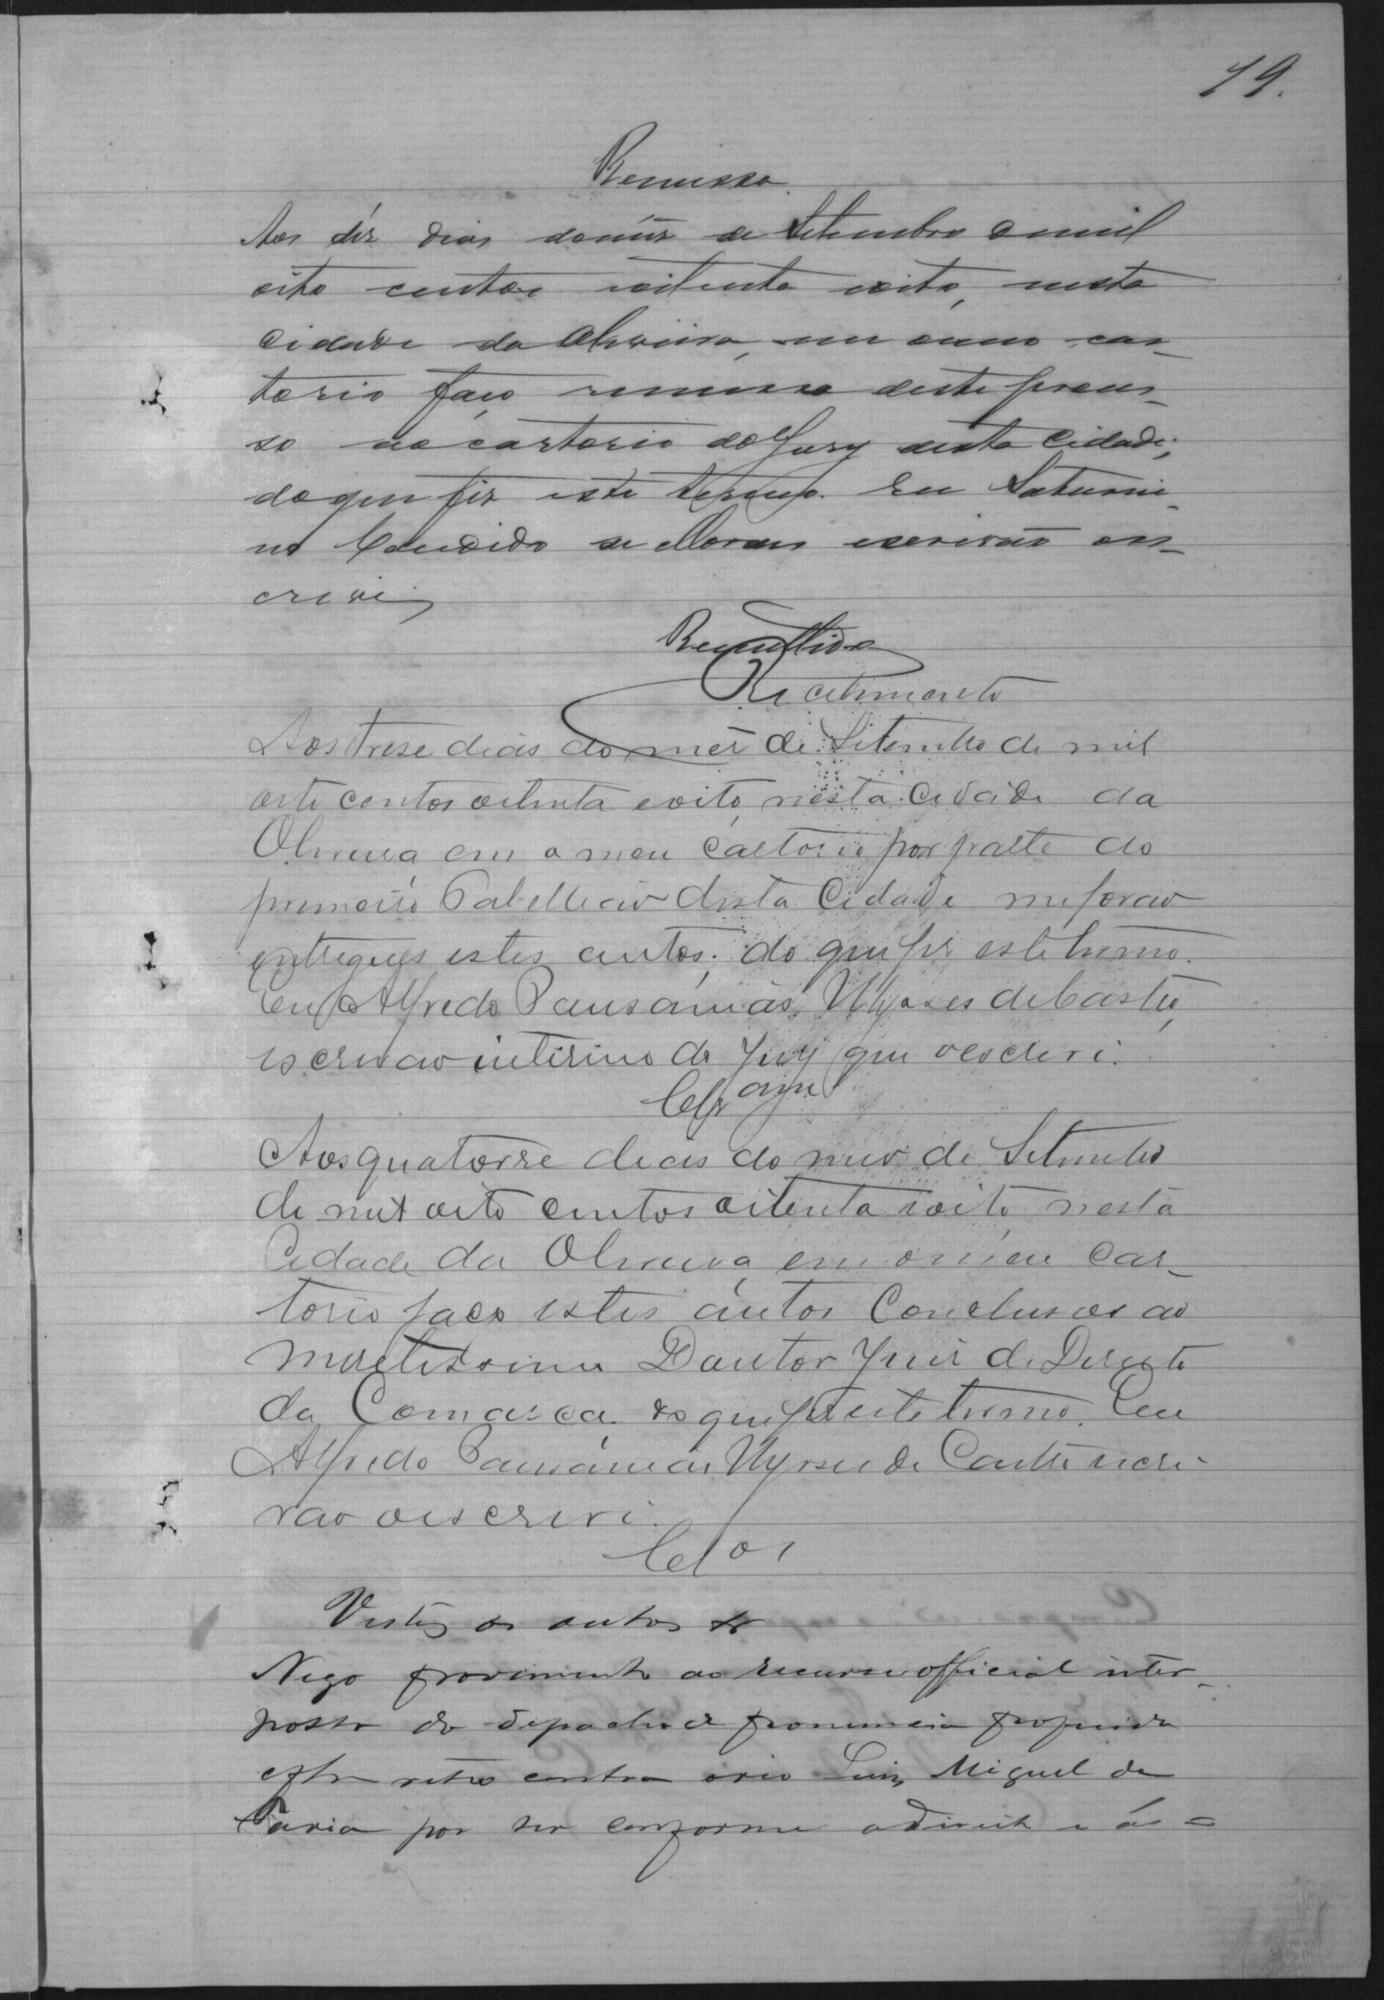 19.
Remessa
Aos déz dias do mez de Setembro de mil
oito centos e oitenta e oito, nesta
Cidade da Oliveira, em o meo car-
torio faço remessa deste proces-
so ao cartorio do Jury desta Cidade;
do que fiz este termo. Eu Saturni-
no Candido de Moraes escrivão es-
crivi,
Remettido
Recebimento
Aos trese dias do mez de Setembro de mil
oito centos oitenta e oito, nesta Cidade da
Oliveira, em o meu Cartorio por parte do
primeiro Tabellião desta Cidade me forão
entregues estes autos; do que fiz este termo.
Eu Alfredo Pausánias Ulysses de Castro,
escrivão interino do Jury que o escrevi.
Clsão
Aos quatorze dias do mez de Setembro
de mil oito centos oitenta e oito nesta
Cidade da Oliveira, em o meu Car-
torio faço estes autos Conclusos ao
meretissimo Doutor Juiz de Direito
da Comarca. do que fiz este termo. Eu
Alfredo Pausánias Ulysses de Castro escri-
vão o escrevi.
Clos
Vistos os autos
Nego provimento ao recurso official inter-
posto do depacho de pronuncia proferida
retro contra o reo Luiz Miguel de
Faria por ser conforme a direito e ás